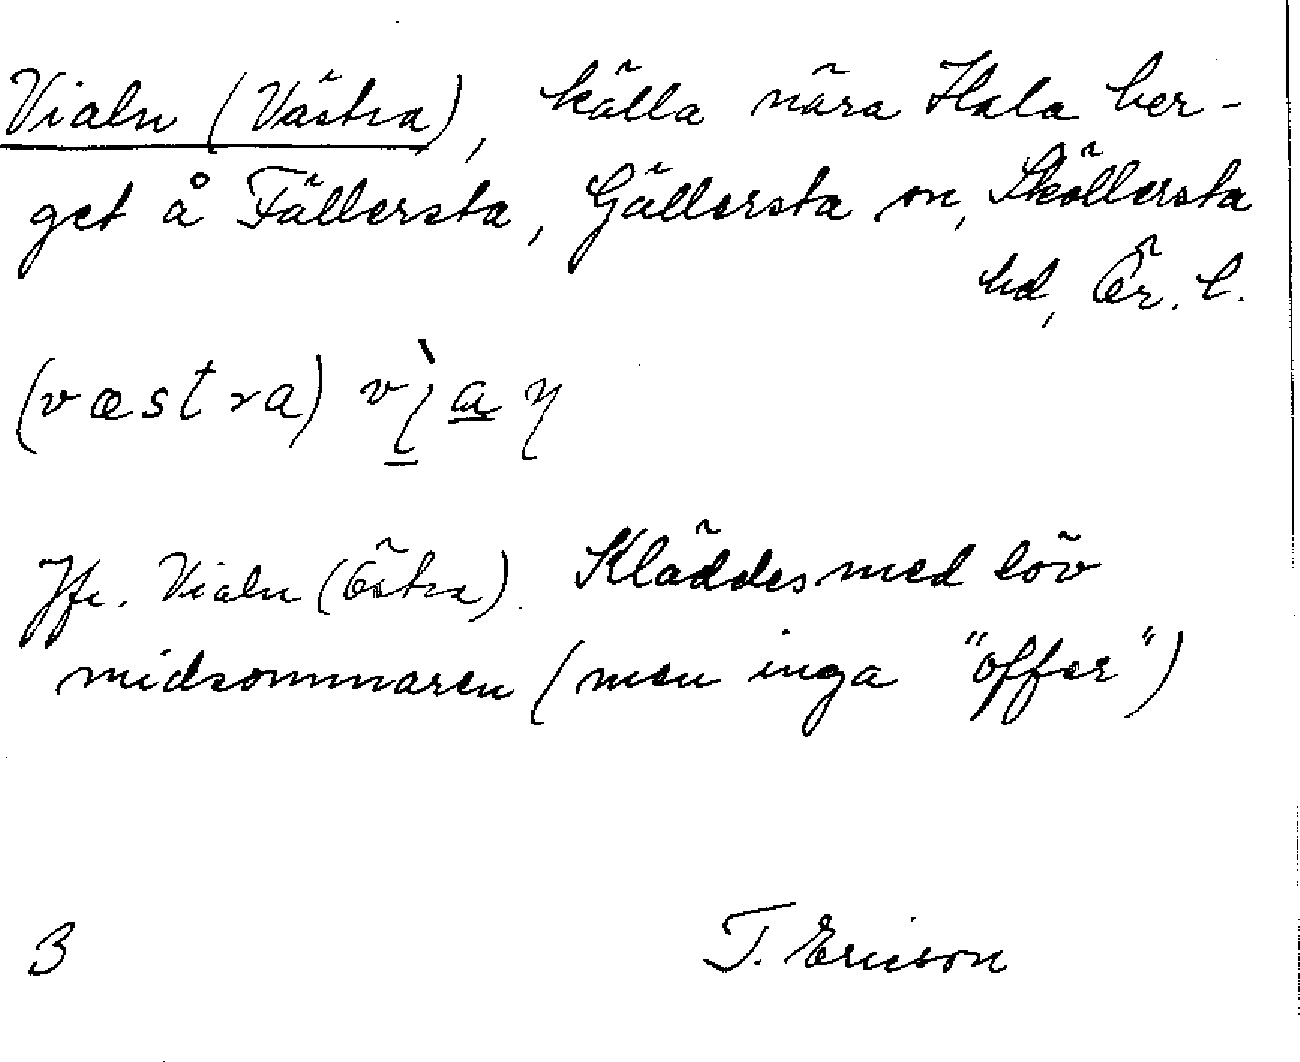 Vialn (Västra), källa nära Hala ber-
get å Fällersta, Gällersta sn, Sköllersta
hd, Ör. l.
(væstra)
Jfr. Vialn (Östra). Kläddes med löv
midsommaren (men inga "offer")
3 T. Ericson